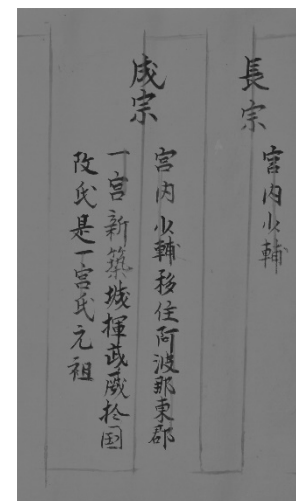 長宗
宮内少輔
成宗
宮内少輔移住阿波那東郡
一宮新築城揮武威於国
改氏是一宮氏元祖